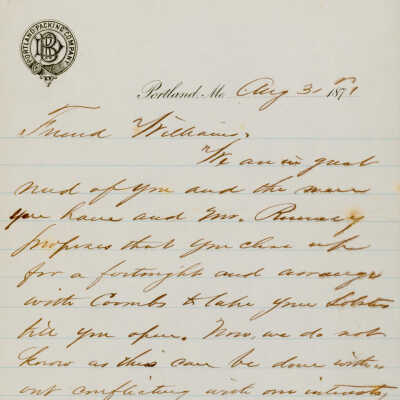 PORTLAND PACKING COMPANY
Portland, Me. Aug 31st 1871
Friend Williams.
We are in great
need of you and the men
you have and Mr. Rumery
proposes that you close up
for a fortnight and arrange
with Coombs to take your lobsters
till you open. Now, we do not
know as this can be done with-
out conflicting with our interests,